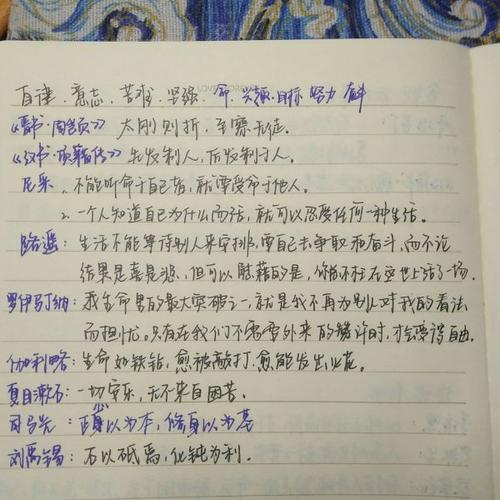 自律．意志．苦难．坚强．命．兴趣．目标．努力 奋斗
《晋书·周顗》 太刚则折，至察无徒。
《汉书·项籍传》 先发制人，后发制于人。
尼采．1、不能听命于自己者，就要受命于他人。
2、一个人知道自己为什么而活，就可以忍受任何一种生活。
路遥：生活不能等待别人来安排，要自己去争取和奋斗，而不论
结果是喜是悲，但可以慰藉的是，你总不枉在这世上活了一场。
罗伊马丁纳：我生命里的最大突破之一，就是我不再为别人对我的看法
而担忧。只有在我们不需要外来的赞许时，才会变得自由。
伽利略：生命如铁砧，愈被敲打，愈能发出火花。
夏目漱石：一切安乐，无不来自困苦。
司马光：正身以为本，修身以为基
刘禹锡：石以砥焉，化钝为利．